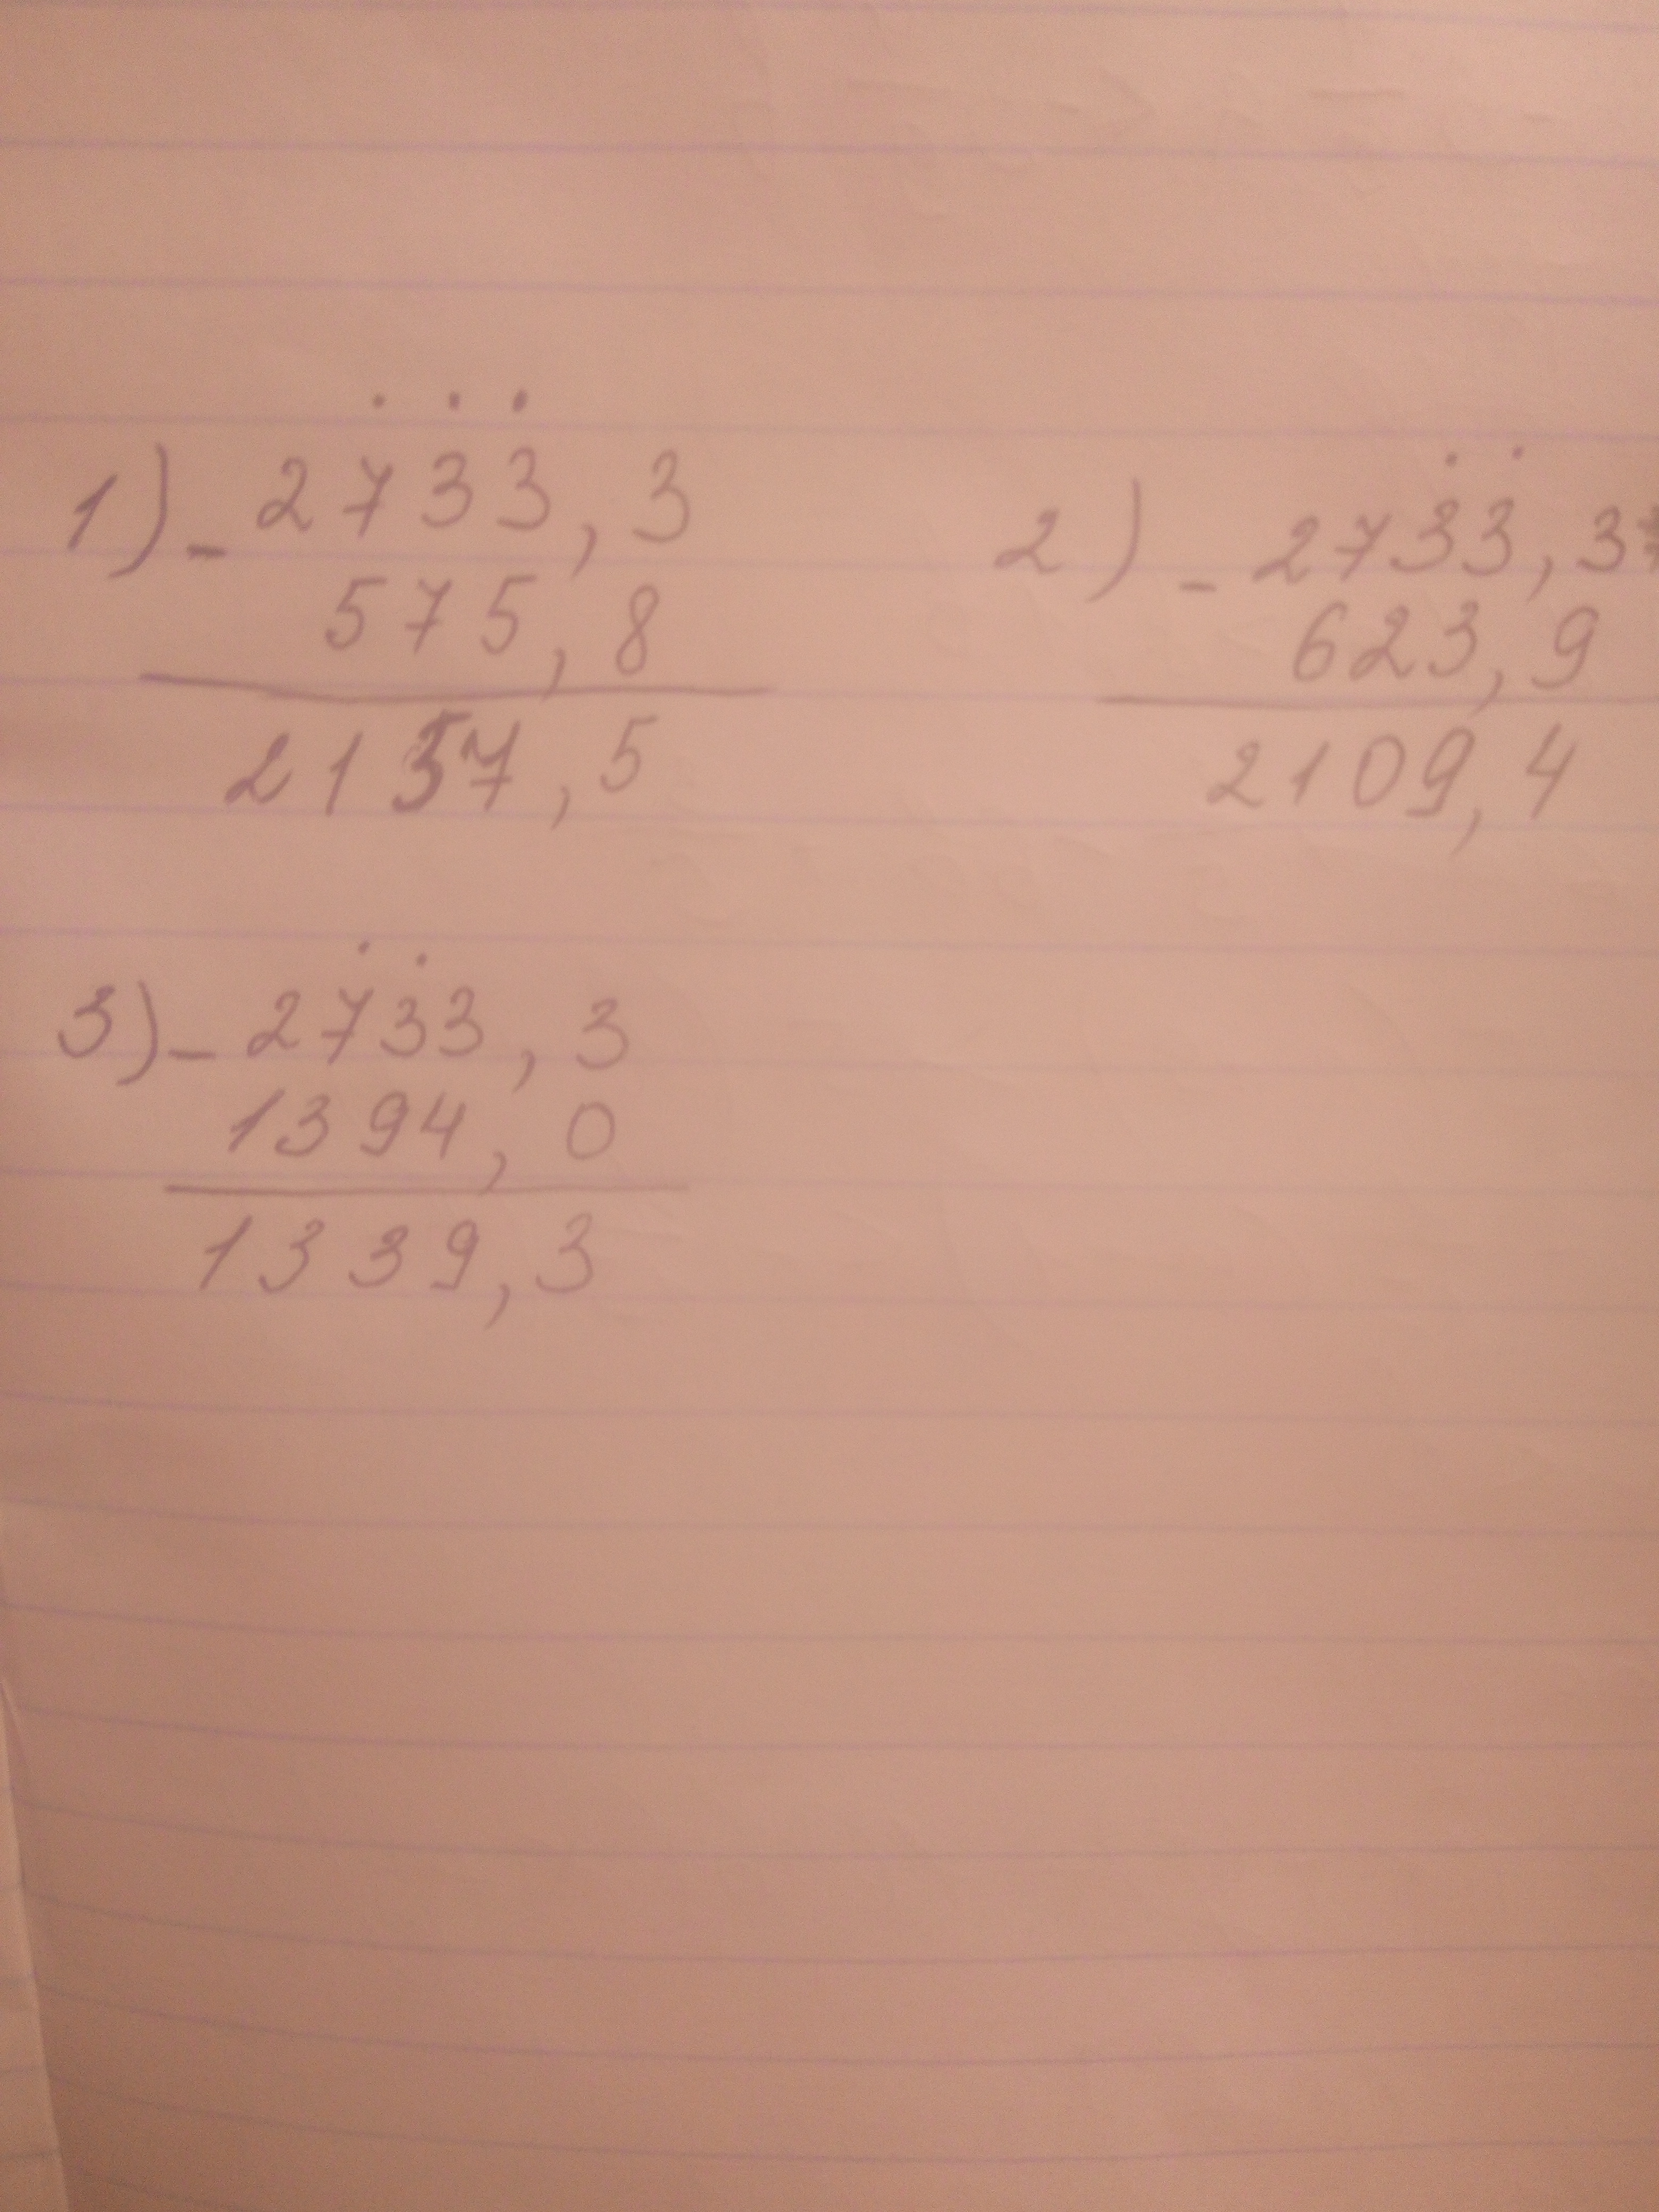 1) - 2733,3
575,8
2157,5
2) - 2733,3
623,9
2109,4
3) - 2733,3
1394,0
1339,3